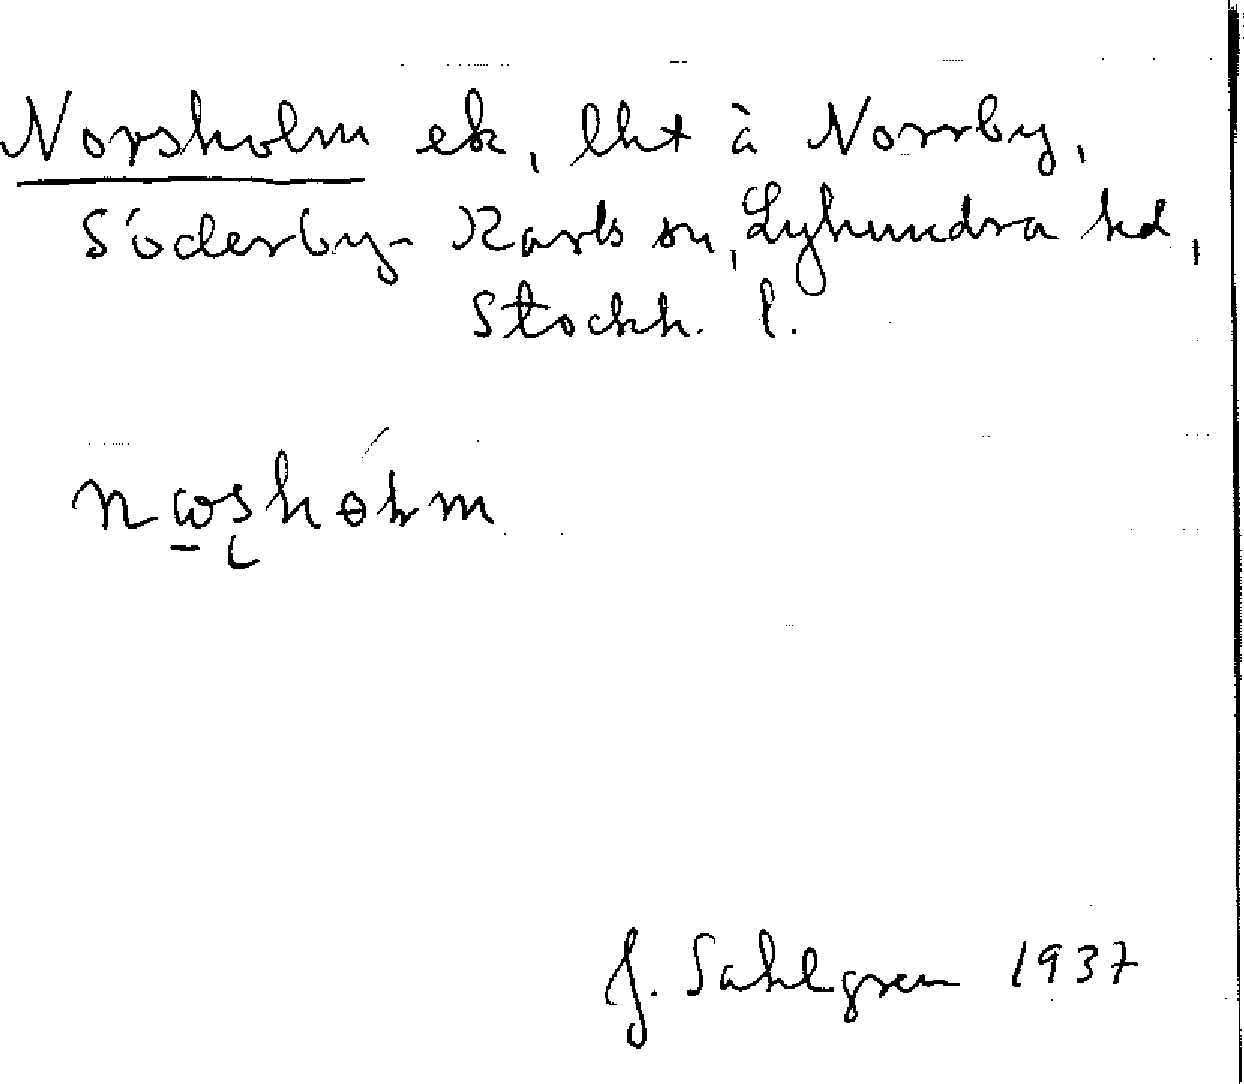 Norsholm ek, lht à Norrby,
Söderby-Karls sn, Lyhundra hd,
Stockh. l.
J. Sahlgren 1937